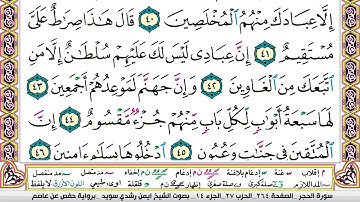 إِلَّا عِبَادَكَ مِنْهُمُ الْمُخْلَصِينَ ٤٠ قَالَ هَٰذَا صِرَاطٌ عَلَيَّ
مُسْتَقِيمٌ ٤١ إِنَّ عِبَادِي لَيْسَ لَكَ عَلَيْهِمْ سُلْطَانٌ إِلَّا مَنِ
اتَّبَعَكَ مِنَ الْغَاوِينَ ٤٢ وَإِنَّ جَهَنَّمَ لَمَوْعِدُهُمْ أَجْمَعِينَ ٤٣
لَهَا سَبْعَةُ أَبْوَابٍ لِكُلِّ بَابٍ مِنْهُمْ جُزْءٌ مَقْسُومٌ ٤٤ إِنَّ
الْمُتَّقِينَ فِي جَنَّاتٍ وَعُيُونٍ ٤٥ ادْخُلُوهَا بِسَلَامٍ آمِنِينَ ٤٦
سورة الحجر . الصفحة ٢٦٤ الحزب ٢٧ . الجزء ١٤ . بصوت الشيخ ايمن رشدي سويد . برواية حفص عن عاصم